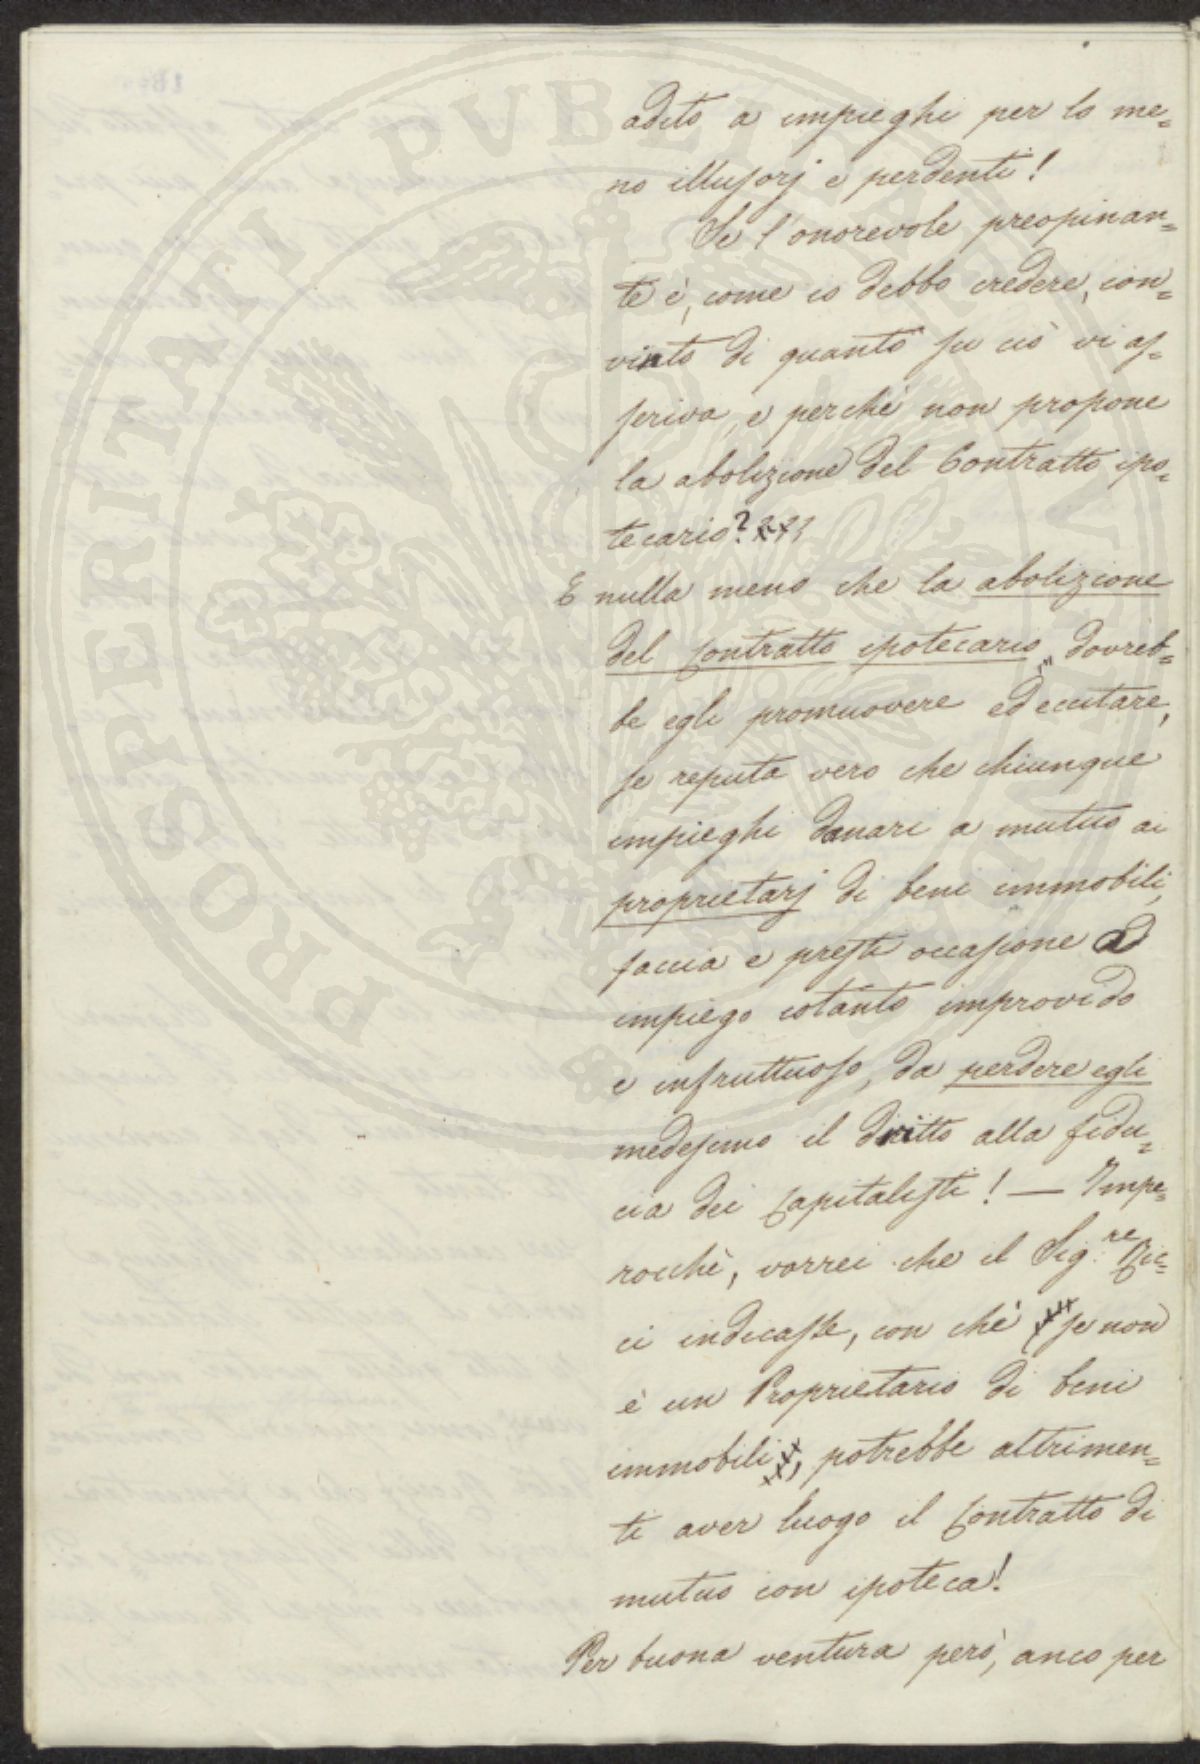 adito a impieghi per lo me=
no illusorj e perdenti!
Se l'onorevole preopinan=
te è, come io debbo credere, con=
vinto di quanto su ciò vi as=
seriva, e perchè non propone
la abolizione del Contratto ipo=
tecario?
E nulla meno che la abolizione
del Contratto ipotecario, dovreb=
be egli promuovere ed eccitare,
se reputa vero che chiunque
impieghi danari a mutuo ai
proprietarj di beni immobili,
faccia e presti occasione ad
impiego cotanto improvido
e infruttuoso, da perdere egli
medesimo il dritto alla fidu=
cia dei Capitalisti! — Impe=
rocchè, vorrei che il Sig.re
ci indicasse, con chè se non
è un Proprietario di beni
immobili, potrebbe altrimen=
ti aver luogo il Contratto di
mutuo con ipoteca!
Per buona ventura però, anco per
PROSPERITATI PVBLICAE